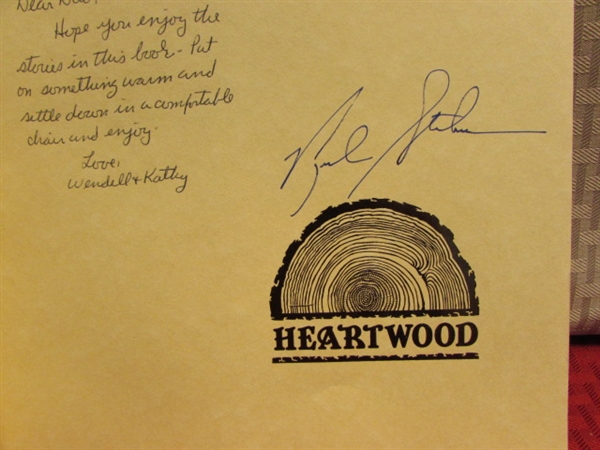 Dear Dad,
Hope you enjoy the
stories in this book - Put
on something warm and
settle down in a comfortable
chair and enjoy.
Love,
Wendell & Kathy
HEARTWOOD